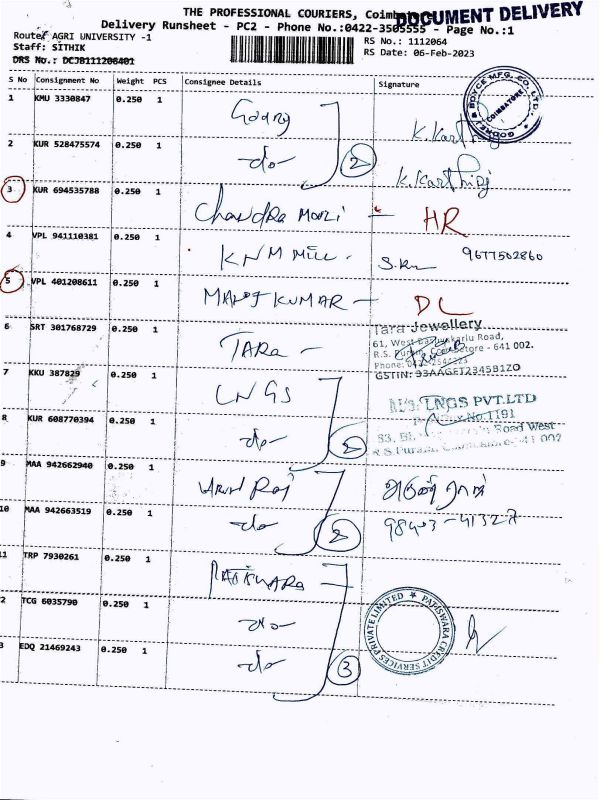 THE PROFESSIONAL COURIERS,
DOCUMENT DELIVERY
Delivery Runsheet - PC2 - Phone No.:0422-3505555 - Page No.:1
Route: AGRI UNIVERSITY -1
Staff: SITHIK
DRS No.: DCJB111206401
RS No.: 1112064
RS Date: 06-Feb-2023
S No Consignment No Weight PCS Consignee Details Signature
1 KMU 3330847 0.250 1
GODREJ & BOYCE MFG. CO. LTD.,
COIMBATORE
2 KUR 528475574 0.250 1 do 2
3 KUR 694535788 0.250 1 HR
4 VPL 941110381 0.250 1 KNM Mill 9677502860
5 VPL 401208611 0.250 1 MANOJ KUMAR DL
6 SRT 301768729 0.250 1 TARA
Tara Jewellery
61, West
R.S. Puram, Coimbatore - 641 002.
Phone:
GSTIN: 33AAGFT2345B1ZO
7 KKU 387829 0.250 1 LNGS
M/s. LNGS PVT.LTD
No.1191
8 KUR 608770394 0.250 1 do 2
83, Road West
R.S.Puram, 641 002
9 MAA 942662940 0.250 1 அருண் ராஜ்
10 MAA 942663519 0.250 1 do 2 98403-41327
11 TRP 7930261 0.250 1
2 TCG 6035790 0.250 1 do
3 EDQ 21469243 0.250 1 do 3
PATISWARA CREDIT SERVICES PRIVATE LIMITED